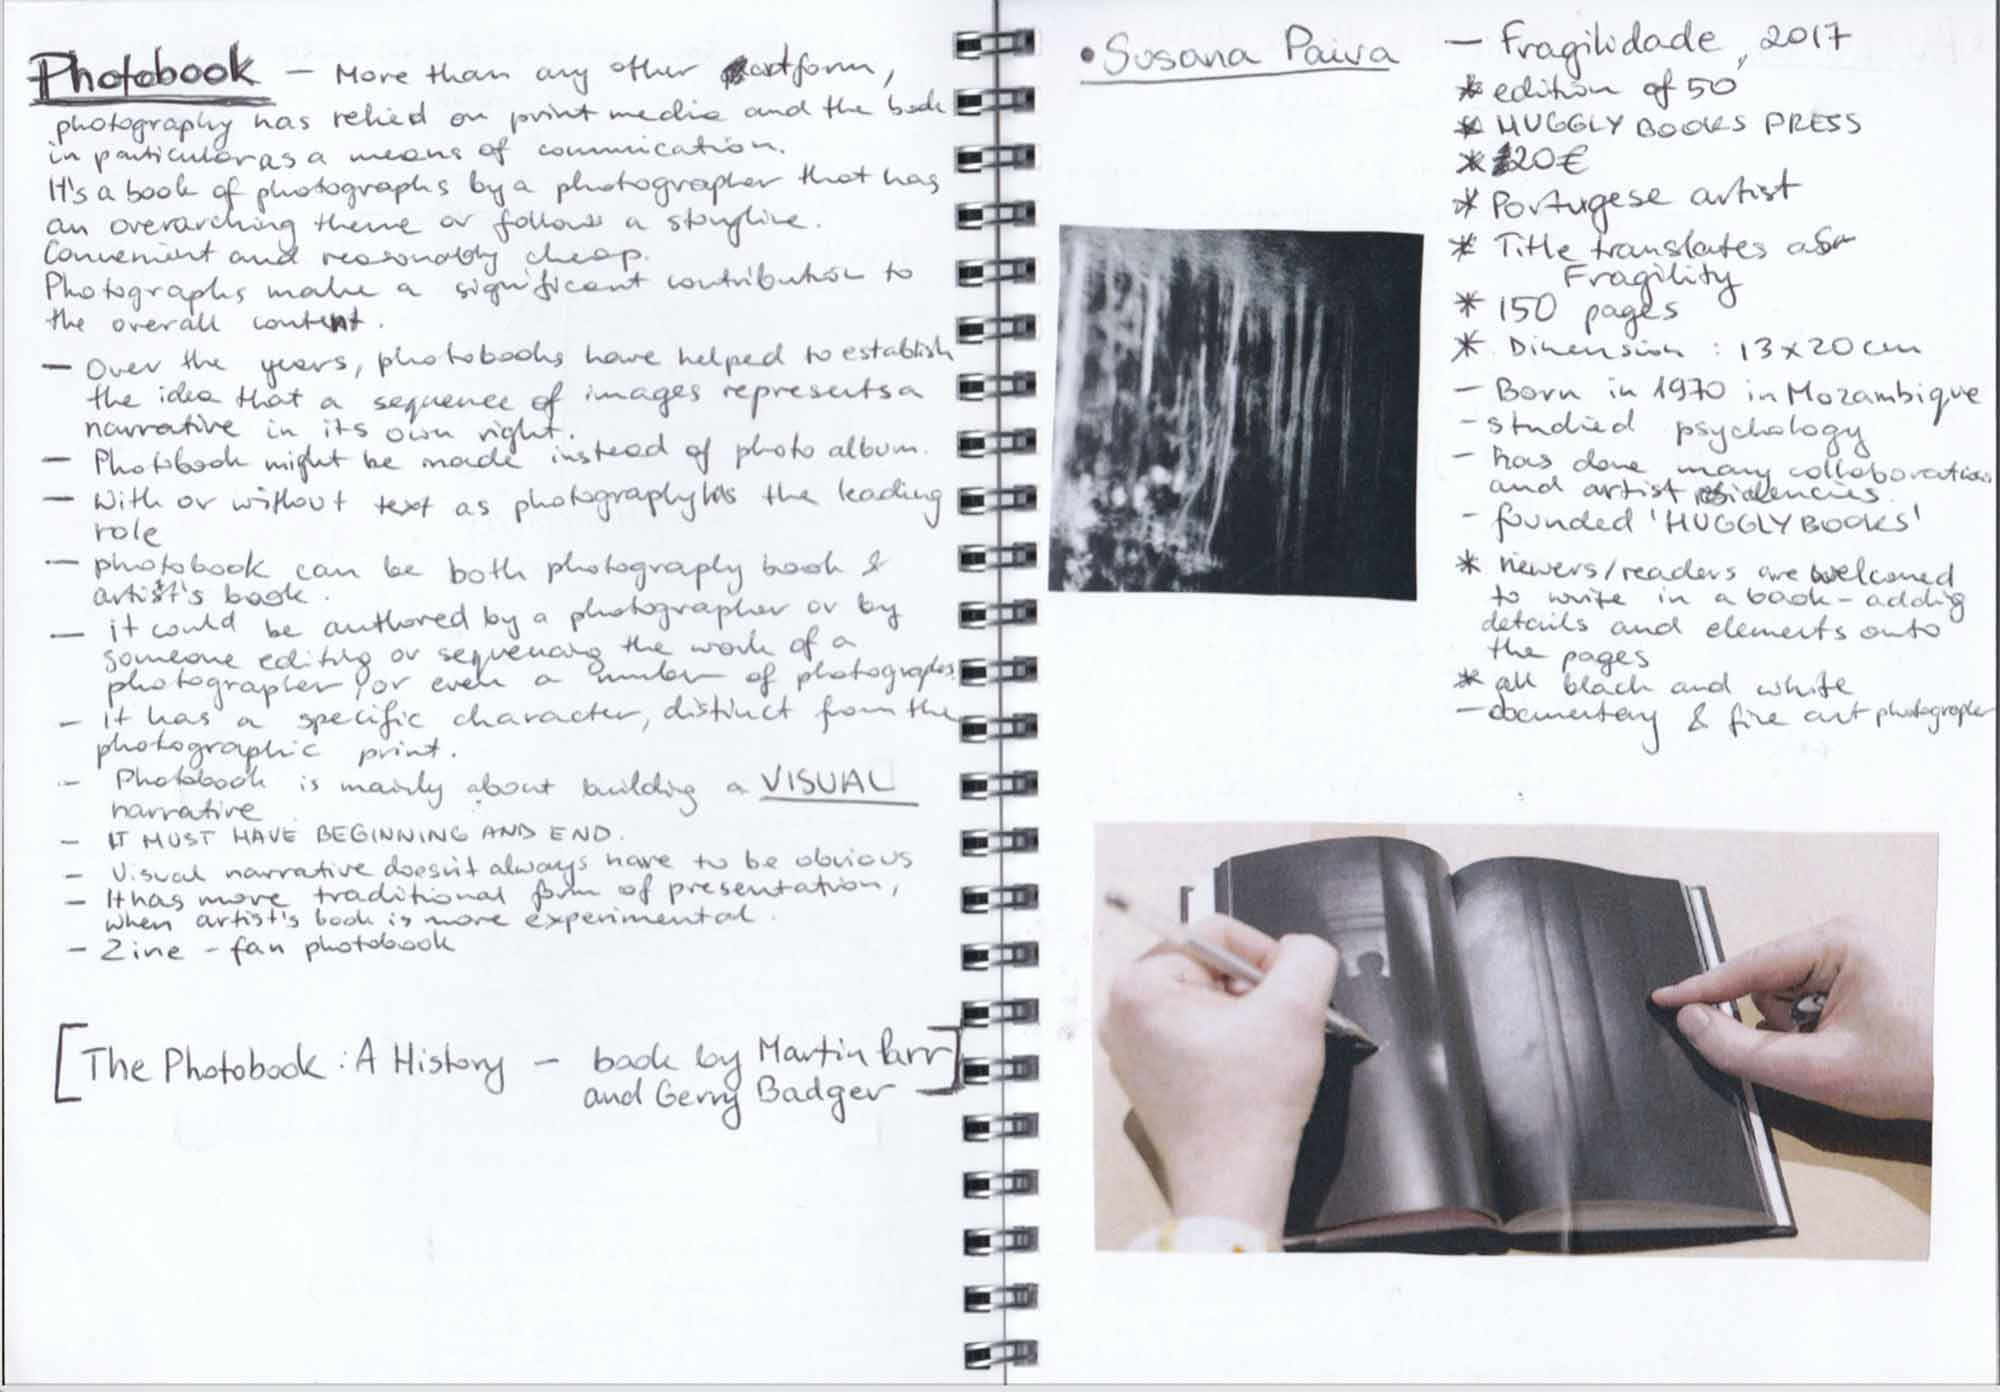 Photobook – More than any other artform,
photography has relied on print media and the book
in particular as a means of commication.
It's a book of photographs by a photographer that has
an overarching theme or follows a storyline.
Convenient and reasonably cheap.
Photographs make a significant contribution to
the overall content.
– Over the years, photobooks have helped to establish
the idea that a sequence of images represents a
narrative in its own right.
– Photobook might be made instead of photo album.
– With or without text as photography has the leading
role
– photobook can be both photography book &
artist's book.
– it could be authored by a photographer or by
someone editing or sequencing the work of a
photographer, or even a number of photographers
– it has a specific character, distinct from the
photographic print.
– Photobook is mainly about building a VISUAL
narrative
– IT MUST HAVE BEGINNING AND END.
– Visual narrative doesn't always have to be obvious
– It has more traditional form of presentation,
when artist's book is more experimental.
– Zine – fan photobook
[The Photobook: A History – book by Martin Parr
and Gerry Badger]
• Susana Paiva
– Fragilidade, 2017
* edition of 50
* HUGGLY BOOKS PRESS
* 20€
* Portugese artist
* Title translates as
Fragility
* 150 pages
* Dimension: 13x20cm
– Born in 1970 in Mozambique
– studied psychology
– has done many collaborations
and artist residencies.
– founded 'HUGGLY BOOKS'
* viewers/readers are welcomed
to write in a book – adding
details and elements onto
the pages
* all black and white
– documentary & fine art photographer